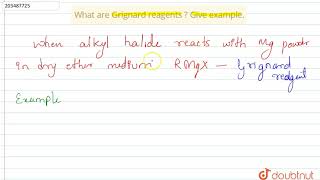 203487725
What are Grignard reagents ? Give example.
When alkyl halide reacts with Mg powder
in dry ether medium. RMgX — Grignard
reagent
Example
doubtnut